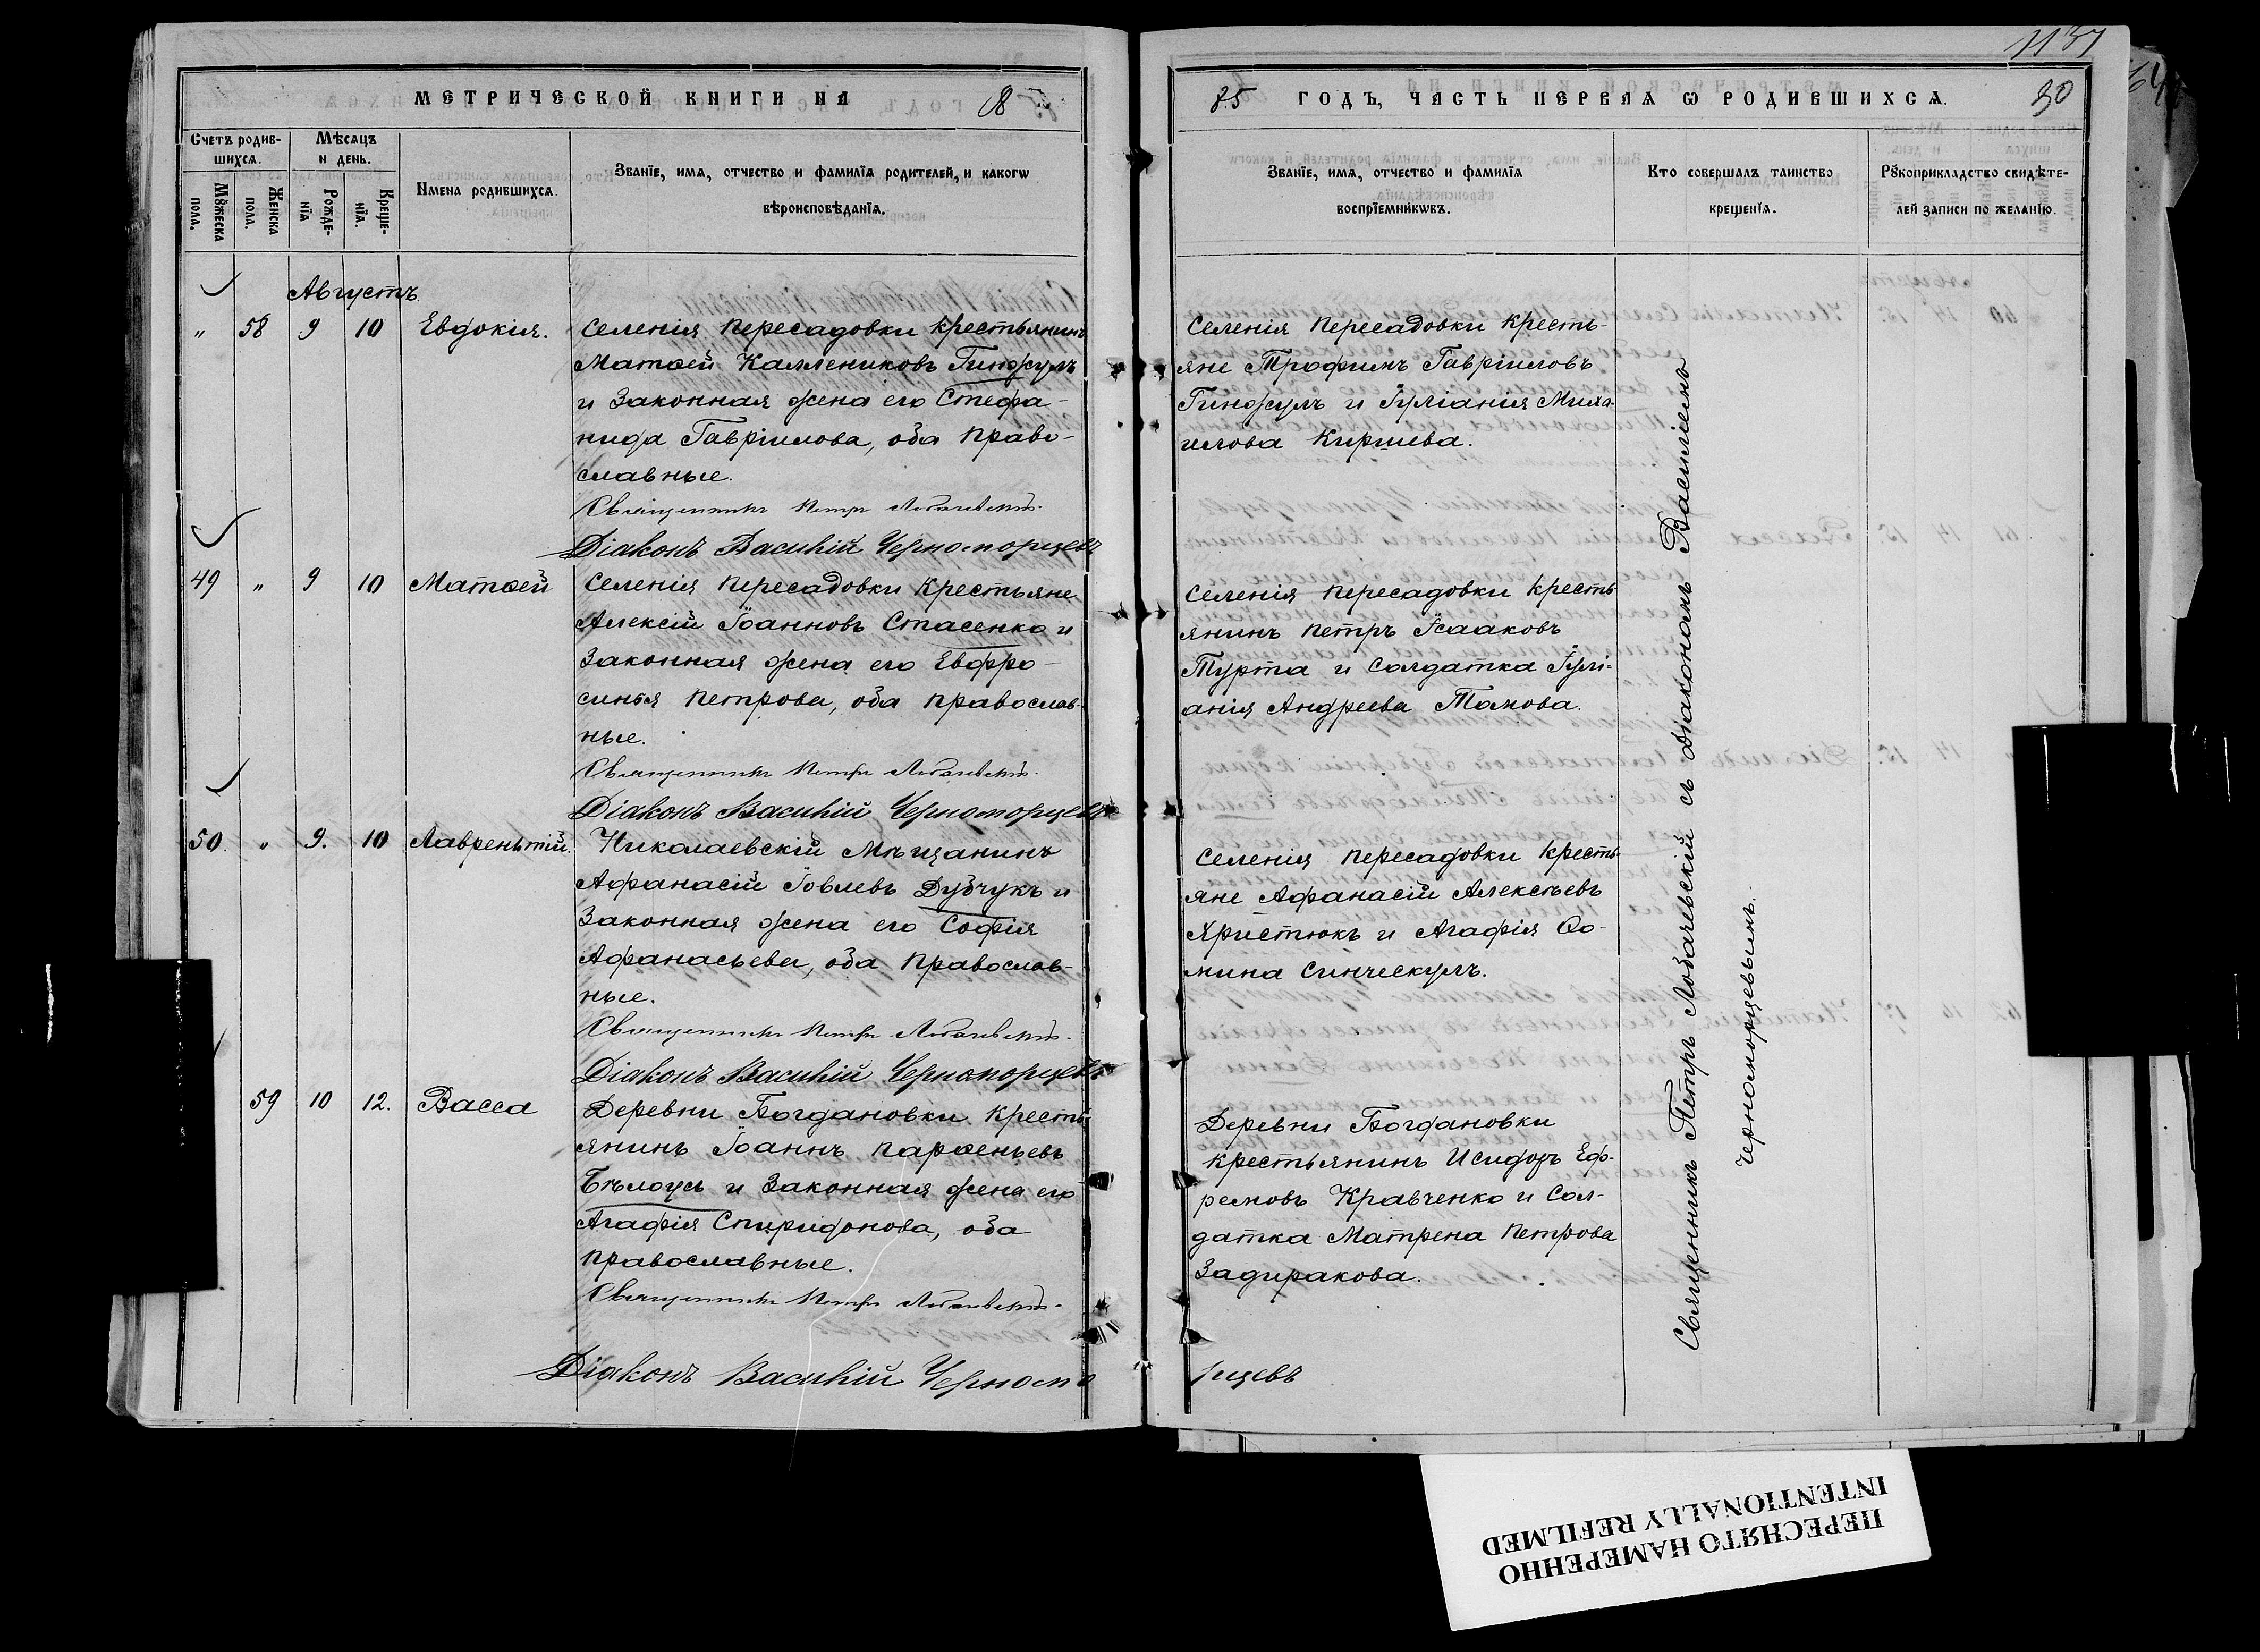 1137
МЕТРИЧЕСКОЙ КНИГИ НА 18
85 ГОДЪ, ЧАСТЬ ПЕРВАЯ Ѡ РОДИВШИХСЯ. 30
Счетъ родив-
шихся.
Мѣсяцъ
и день.
Мꙋжеска
пола.
Женска
пола.
Рожде-
нїя
Креще-
нїя.
Имена родившихся.
Званїе, имя, отчество и фамилїя родителей, и какогѡ
вѣроисповѣданїя.
Званїе, имя, отчество и фамилїя
воспрїемникѡвъ.
Кто совершалъ таинство
крещенїя.
Рꙋкоприкладство свидѣте-
лей записи по желанїю.
Августъ
" 58 9 10 Евдокія.
Селенія Пересадовки крестьянинъ
Матѳей Каллениковъ Гинжулъ
и законная жена его Стефа-
нида Гавріилова, оба право-
славные.
Священникъ Петръ Лобачевскій.
Діаконъ Василій Черноморцевъ
Селенія Пересадовки кресть-
яне Трофимъ Гавріиловъ
Гинжулъ и Іуліанія Миха-
илова Киршева.
49 " 9 10 Матѳей
Селенія Пересадовки крестьяне
Алексій Іоанновъ Стасенко и
законная жена его Евфро-
синья Петрова, оба православ-
ные.
Священникъ Петръ Лобачевскій.
Діаконъ Василій Черноморцевъ
Селенія Пересадовки кресть
янинъ Петръ Исааковъ
Турта и солдатка Іулі-
анія Андреева Томова.
50. " 9. 10 Лаврентій.
Николаевскій мѣщанинъ
Афанасій Іовлевъ Дубчукъ и
законная жена его Софія
Афанасьева, оба православ-
ные.
Священникъ Петръ Лобачевскій.
Діаконъ Василій Черноморцевъ
Селенія Пересадовки кресть-
яне Афанасій Алексѣевъ
Христюкъ и Агафія Ѳо-
мина Синчекулъ.
59 10 12. Васса
Деревни Богдановки кресть-
янинъ Іоаннъ Парѳеньевъ
Бѣлоусъ и законная жена его
Агафія Спиридонова, оба
православные.
Священникъ Петръ Лобачевскій.
Діаконъ Василій Черномо
рцевъ
Деревни Богдановки
крестьянинъ Исидоръ Еф-
ремовъ Кравченко и сол-
датка Матрена Петрова
Задиракова.
Священникъ Петръ Лобачевскій съ діакономъ Василіемъ
Черноморцевымъ.
ПЕРЕСНЯТО НАМЕРЕННО
INTENTIONALLY REFILMED